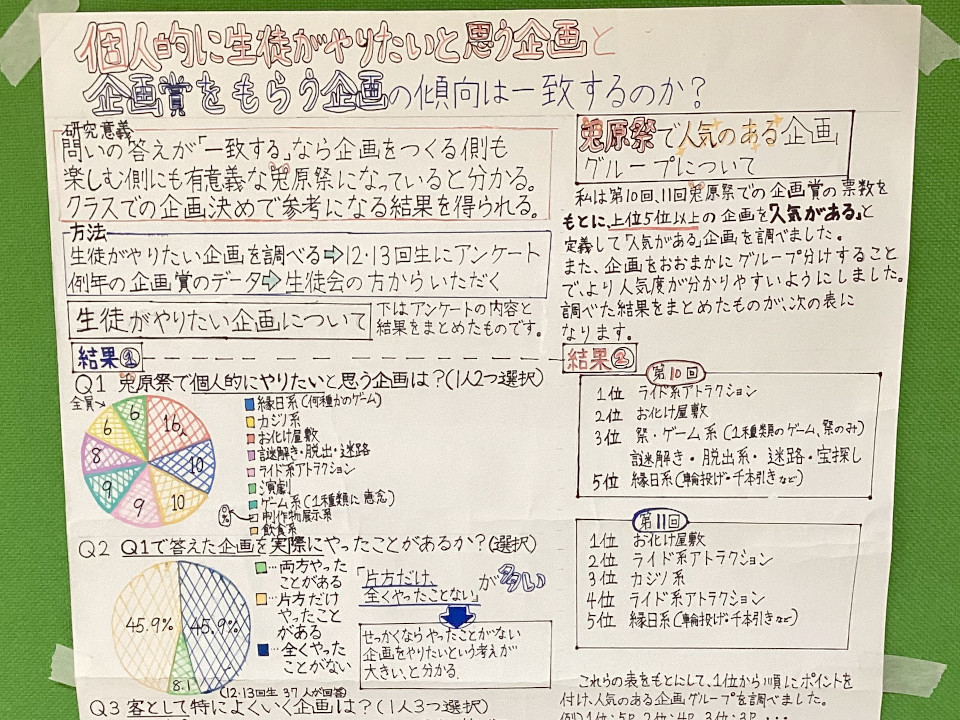 個人的に生徒がやりたいと思う企画と
企画賞をもらう企画の傾向は一致するのか?
研究意義
問いの答えが「一致する」なら企画をつくる側も
楽しむ側にも有意義な兎原祭になっていると分かる。
クラスでの企画決めで参考になる結果を得られる。
方法
生徒がやりたい企画を調べる⇨12・13回生にアンケート
例年の企画賞のデータ⇨生徒会の方からいただく
生徒がやりたい企画について
下はアンケートの内容と
結果をまとめたものです。
結果①
Q1 兎原祭で個人的にやりたいと思う企画は?(1人2つ選択)
全員→
16人
10
10
9
9
8
6
6
縁日系(何種かのゲーム)
カジノ系
お化け屋敷
謎解き・脱出・迷路
ライド系アトラクション
演劇
ゲーム系(1種類に専念)
制作物展示系
飲食系
0%
Q2 Q1で答えた企画を実際にやったことがあるか?(選択)
45.9%
45.9%
8.1
…両方やった
ことがある
…片方だけ
やったこと
がある
…全くやった
ことがない
「片方だけ、
全くやったことない」が多い
せっかくならやったことがない
企画をやりたいという考えが
大きい、と分かる。
(12・13回生 37人が回答)
Q3 客として特によくいく企画は?(1人3つ選択)
兎原祭で人気のある企画
グループについて
私は第10回、11回兎原祭での企画賞の票数を
もとに、上位5位以上の企画を「人気がある」と
定義して「人気がある」企画を調べました。
また、企画をおおまかにグループ分けすること
で、より人気度が分かりやすいようにしました。
調べた結果をまとめたものが、次の表に
なります。
結果②
第10回
1位 ライド系アトラクション
2位 お化け屋敷
3位 祭・ゲーム系(1種類のゲーム、祭のみ)
謎解き・脱出系・迷路・宝探し
5位 縁日系(輪投げ・千本引きなど)
第11回
1位 お化け屋敷
2位 ライド系アトラクション
3位 カジノ系
4位 ライド系アトラクション
5位 縁日系(輪投げ・千本引きなど)
これらの表をもとにして、1位から順にポイントを
付け、人気のある企画グループを調べました。
例)1位:5P、2位:4P、3位:3P…